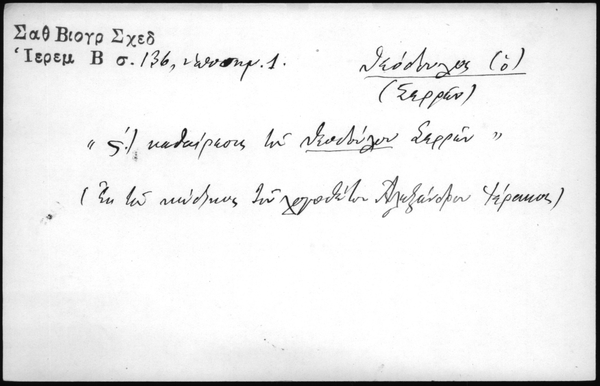 Σαθ Βιογρ Σχεδ
Ἱερεμ Β σ. 136, υποσημ. 1.
Θεόδουλος (ὁ)
(Σερρῶν)
" ς΄) καθαίρεσις τοῦ Θεοδούλου Σερρῶν "
(Ἐκ τοῦ κώδικος τοῦ λογοθέτου Ἀλεξάνδρου)